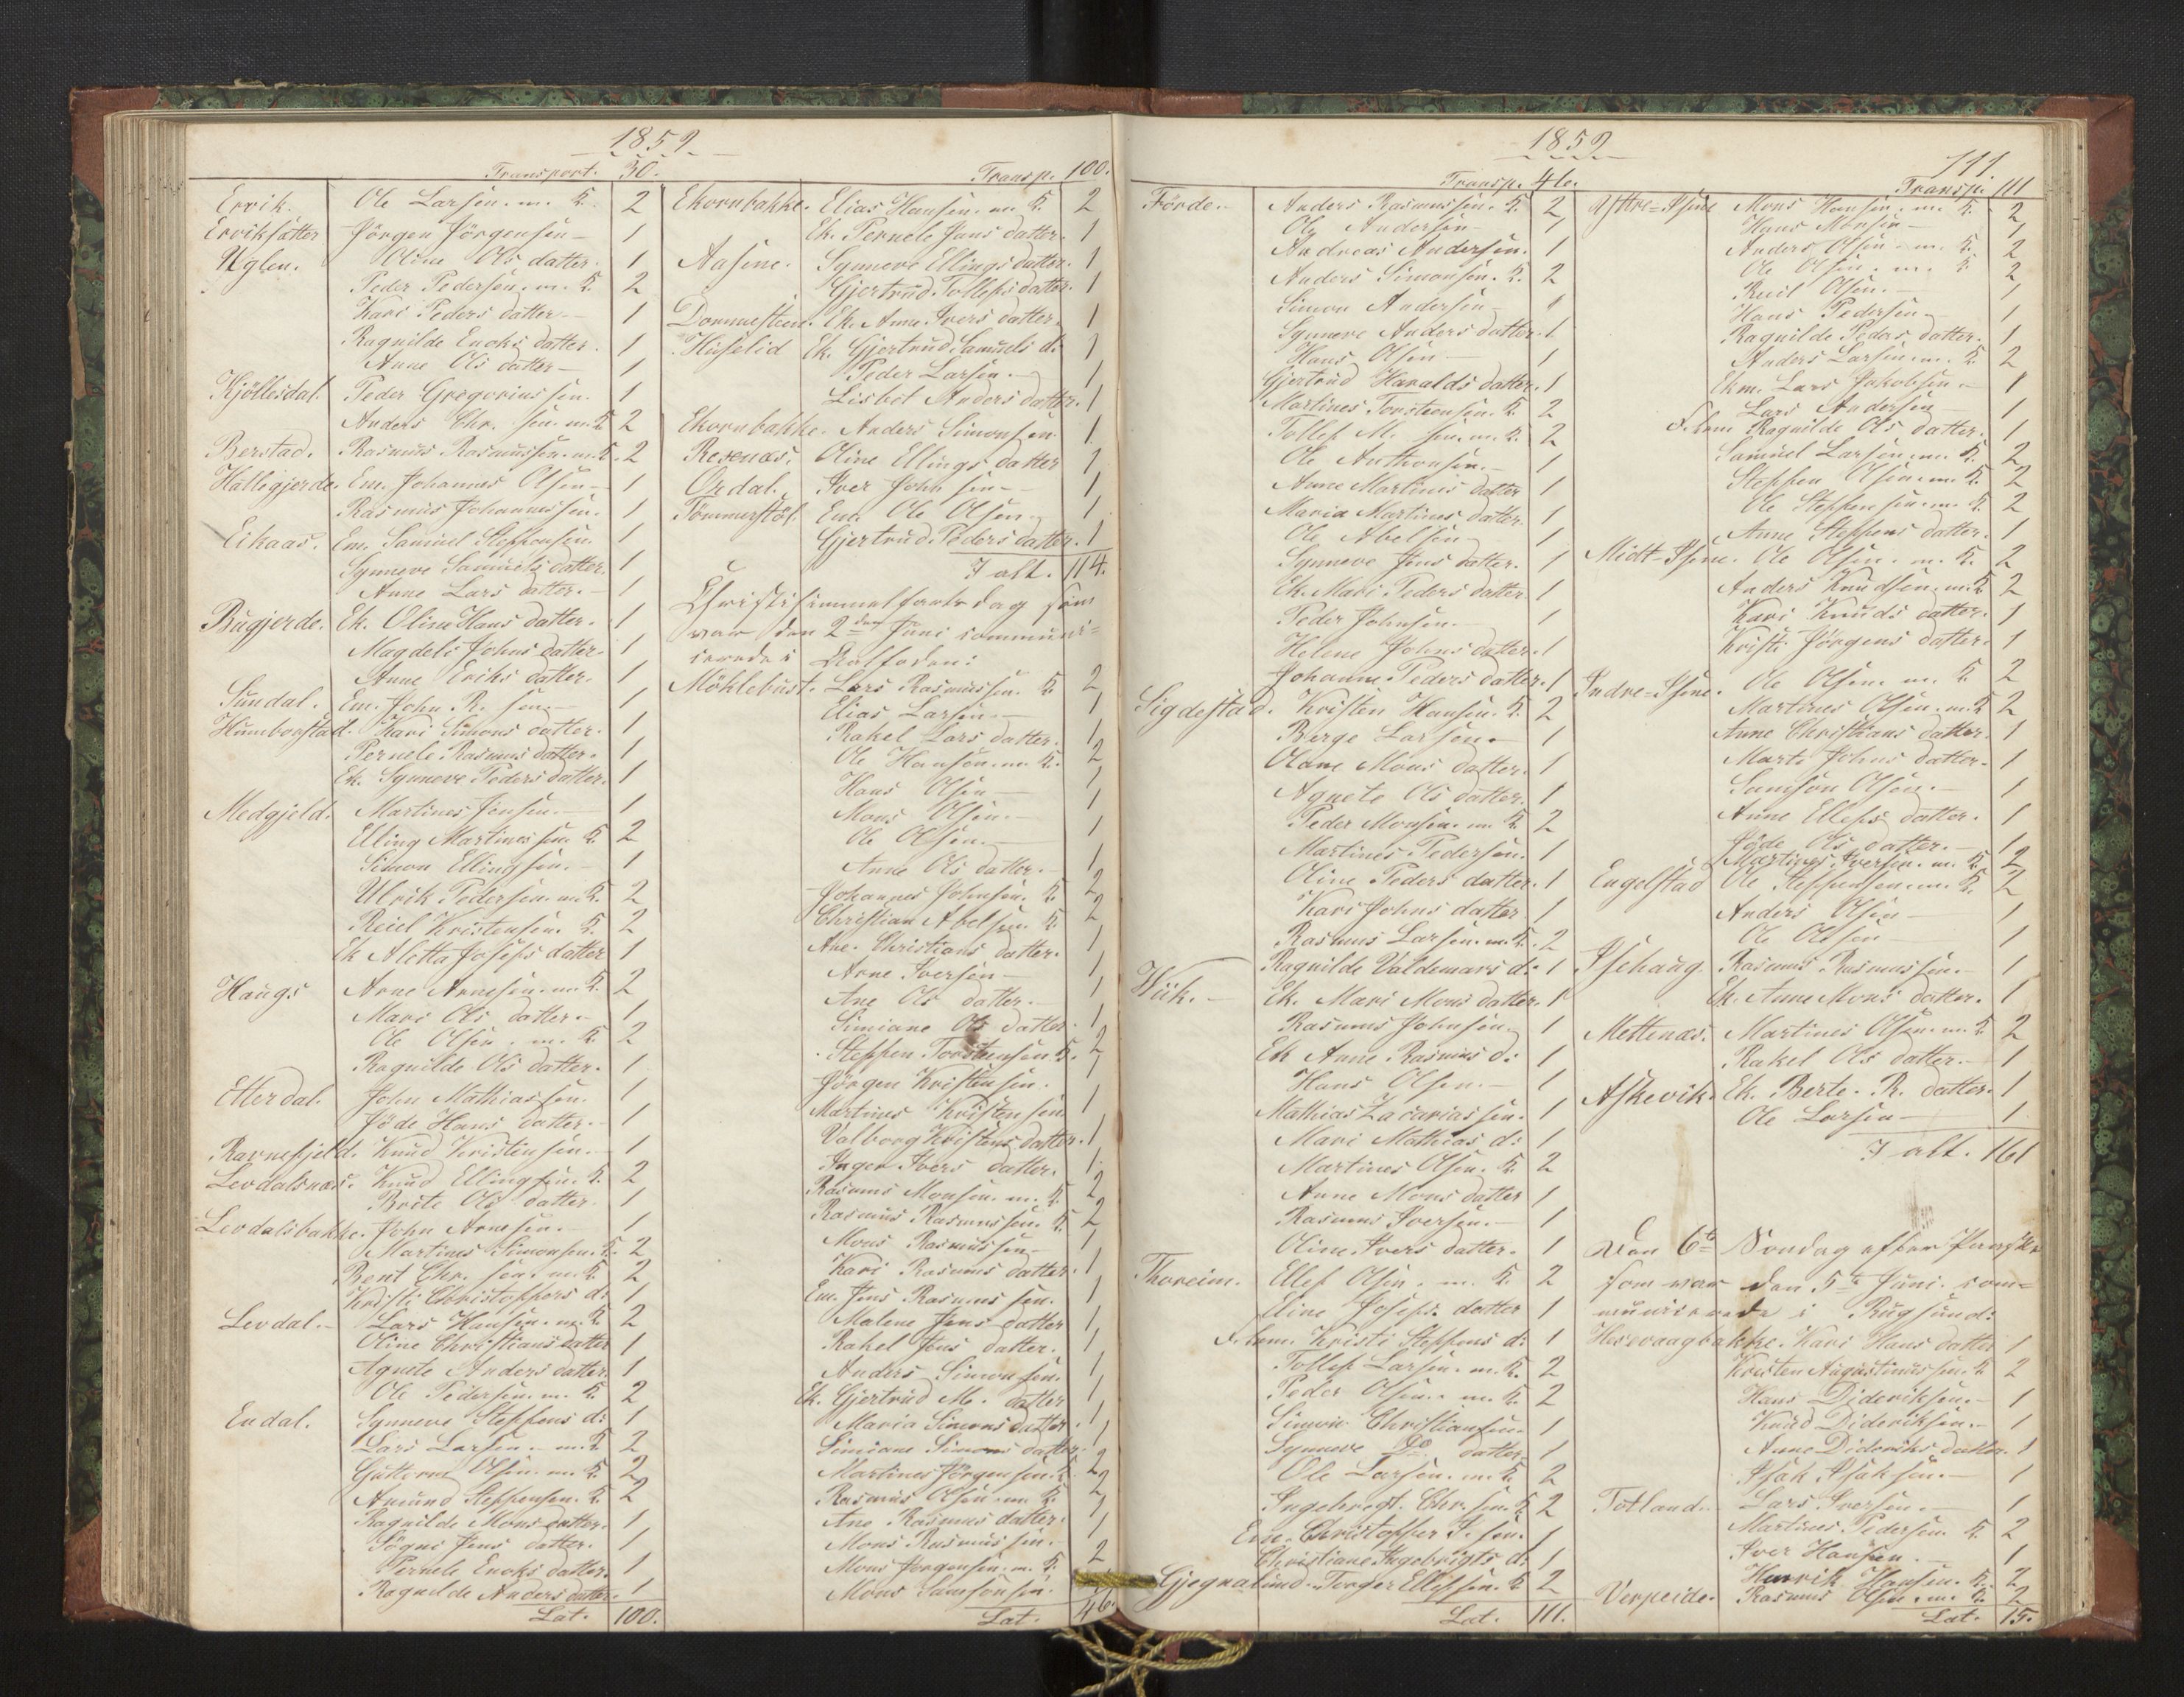 1859
Transport. 30.
Ervik. Ole Larsen. m. K. 2
Erviksätter Jörgen Jörgensen 1
Uglen. Oline Ols datter. 1
Peder Pedersen. m. K. 2
Kari Peders datter 1
Ragnilde Enoks datter. 1
Anne Ols datter 1
Kjöllesdal. Peder Gregoriussen. 1
Anders Chr. sen. m. K 2
Berstad. Rasmus Rasmussen. m. K. 2
Hallsgjerde. Em. Johannes Olsen 1
Rasmus Johannessen. 1
Eikaas. Em. Samuel Steffensen. 1
Synneve Samuels datter. 1
Anne Lars datter. 1
Bugjerde. Ek. Oline Hans datter. 1
Magdeli Johns datter. 1
Anne Eriks datter. 1
Sundal. Em. John R. sen. 1
Humborstad. Kari Simons datter. 1
Pernele Rasmus datter. 1
Ek. Synneve Peders datter. 1
Medgjeld. Martines Jensen. 1
Elling Martinessen. K. 2
Simon Ellingsen. 1
Ulrik Pedersen. m. K. 2
Reiel Kristensen. K. 2
Ek Aletta Josefs datter 1
Haugs Arne Arnesen. m. K. 2
Mari Ols datter. 1
Ole Olsen. m. K 2
Ragnilde Ols datter. 1
Etterdal. John Mathiassen. 1
Jöde Hans datter. 1
Ravnefjeld. Knud Kristensen. 1
Levdalsnæs. Knud Ellingsen. K. 2
Brite Ols datter. 1
Levdalsbakke. John Arnesen. 1
Martines Simonsen. K. 2
Bent Chr. sen. m. K. 2
Kristi Christoffers d: 1
Levdal. Lars Hansen. m. K 2
Oline Christians datter 1
Agnete Anders datter. 1
Ole Pedersen. m. K. 2
Endal. Synneve Steffens d: 1
Lars Larsen. m. K 2
Guttorm Olsen. m. K. 2
Amund Steffensen. K. 2
Ragnilde Mons datter. 1
Sögni Jens datter. 1
Pernele Enoks datter. 1
Ragnilde Anders datter. 1
Lat. 100.
Transp. 100.
Ekornbakke. Elias Hansen. m. K. 2
Ek. Pernele Jans datter. 1
Aasene. Synneve Ellings datter. 1
Gjertrud Tollefs datter. 1
Dommesteen. Ek. Anne Ivers datter. 1
Huselid Ek. Gjertrud Samuels d: 1
Peder Larsen. 1
Lisbet Anders datter. 1
Ekornbakke. Anders Simonsen 1
Revenæs. Oline Ellings datter 1
Ordal. Iver Johnsen 1
Tömmerstöl. Em. Ole Olsen. 1
Gjertrud Peders datter. 1
I alt. 114.
Christi himmelfarts dag som
var den 2den Juni communi=
cerede i Kalfoden:
Möklebust. Lars Rasmussen. K. 2
Elias Larsen. 1
Rakel Lars datter. 1
Ole Hansen. m. K. 2
Hans Olsen 1
Mons Olsen. 1
Ole Olsen. 1
Anne Ols datter. 1
Johannes Johnsen. K. 2
Christian Abelsen. K 2
Ane. Christians datter. 1
Arne Iversen 1
Ane Ols datter. 1
Simiane Ols datter. 1
Steffen Torstensen. K. 2
Jörgen Kristensen. 1
Martines Kristensen 1
Valborg Kristens datter. 1
Inger Ivers datter. 1
Rasmus Monsen. m. K. 2
Rasmus Rasmussen. K. 2
Mons Rasmussen 1
Kari Rasmus datter. 1
Em. Jens Rasmussen. 1
Malene Jens datter 1
Rakel Jens datter. 1
Anders Simonsen. 1
Ek. Gjertrud M. datter 1
Maria Simons datter. 1
Simiane Simons datter. 1
Martines Jörgensen. K. 2
Rasmus Olsen. m. K. 2
Ane Rasmus datter. 1
Mons Rasmussen. 1
Mons Jörgensen. m. K. 2
Mons Samsonsen.
Lat. 46.
1859
111.
Transp. 46.
Förde. Anders Rasmussen. K. 2
Ole Andersen 1
Andreas Andersen. 1
Anders Simonsen. K. 2
Simon Andersen 1
Synneve Anders datter. 1
Hans Olsen 1
Gjertrud Haralds datter. 1
Martines Torstensen. K. 2
Tollef M. sen. m. K. 2
Ole Anthonsen. 1
Anne Martines datter 1
Maria Martines datter. 1
Ole Abelsen 1
Synneve Jens datter. 1
Ek. Mari Peders datter. 1
Peder Johnsen. 1
Helene Johns datter. 1
Johanne Peders datter. 1
Sigdestad. Kristen Hansen. K. 2
Berge Larsen. 1
Oldne Mons datter. 1
Agnete Ols datter. 1
Peder Monsen. m. K 2
Martines Pedersen. 1
Oline Peders datter. 1
Kari Johns datter 1
Rasmus Larsen. m. K. 2
Ragnilde Valdemars d: 1
Wiik. Ek. Mari Mons datter. 1
Rasmus Johnsen. 1
Ek Anne Rasmus d: 1
Hans Olsen. 1
Mathias Zacariassen. 1
Mari Mathias d: 1
Martines Olsen. K. 2
Anne Mons datter 1
Rasmus Iversen. 1
Oline Ivers datter. 1
Thoreim. Ellef Olsen. m. K. 2
Eline Josefs datter 1
F. kone. Kristi Steffens d: 1
Tollef Larsen. m. K. 2
Peder Olsen. m. K. 2
Simon Christiansen. 1
Synneve Do datter 1
Ole Larsen. m. K. 2
Ingebregt. Chr. sen. K 2
Em. Christoffer I. sen. 1
Christiane Ingebrigts d: 1
Gjegnalund. Torger Ellefsen. K. 2
Lat. 111.
Transp. 111
Yttre=Isene Mons Hansen. m. K. 2
Hans Monsen 1
Anders Olsen. m. K. 2
Ole Olsen. m. K 2
Reiel Olsen. 1
Hans Pedersen 1
Ragnilde Peders datter. 1
Anders Larsen. m. K. 2
Ekm. Lars Jakobsen. 1
Lars Andersen 1
F. kone Ragnilde Ols datter. 1
Samuel Larsen. m. K. 2
Steffen Olsen. m. K. 2
Ole Steffensen. m. K 2
Anne Steffens datter. 1
Midt-Isene. Ole Olsen. m. K. 2
Anders Knudsen. m. K 2
Kari Knuds datter. 1
Kristi Jörgens datter. 1
Indre=Isene. Ole Olsen. m. K 2
Martines Olsen. m. K 2
Anne Christians datter. 1
Marte Johns datter. 1
Samson Olsen. 1
Anne Ellefs datter. 1
Jöde Ols datter. 1
Martines Iversen. m. K 2
Engelstad Ole Steffensen. m. K. 2
Anders Olsen 1
Ole Olsen 1
Isehaug. Rasmus Rasmussen. 1
Ek. Anne Mons datter. 1
Mettenæs. Martines Olsen. m. K. 2
Rakel Ols datter. 1
Askevik. Ek. Berte. R. datter. 1
Ole Larsen 1
I alt. 161
Den 6te Söndag efter Paaske
som var den 5te Juni com=
municerede i Rugsund:
Hesevaagbakke. Kari Hans datter 1
Kristen Augustinussen. K 2
Hans Dideriksen. 1
Knud Dideriksen. 1
Anne Dideriks datter. 1
Isak Isaksen. 1
Totland. Lars Iversen. 1
Martines Pedersen. K. 2
Iver Hansen. 1
Henrik Hansen. K. 2
Verpeide. Rasmus Olsen. m. K. 2
Lat. 15.